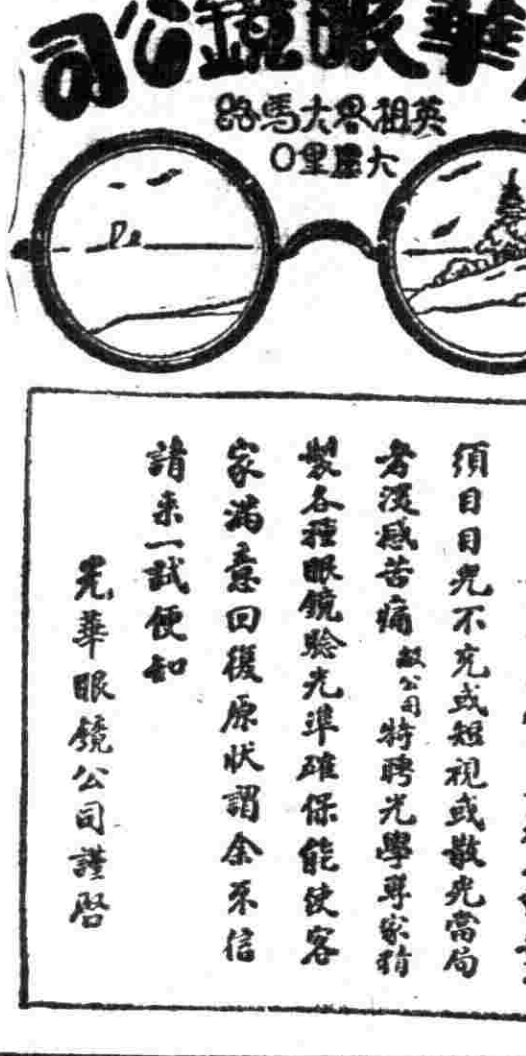 華眼鏡公司
英租界大馬路
大慶里口
須目目光不充或短視或散光當局
者深感苦痛敝公司特聘光學專家精
製各種眼鏡驗光準確保能使客
家滿意回復原狀謂余不信
請來一試便知
光華眼鏡公司謹啓